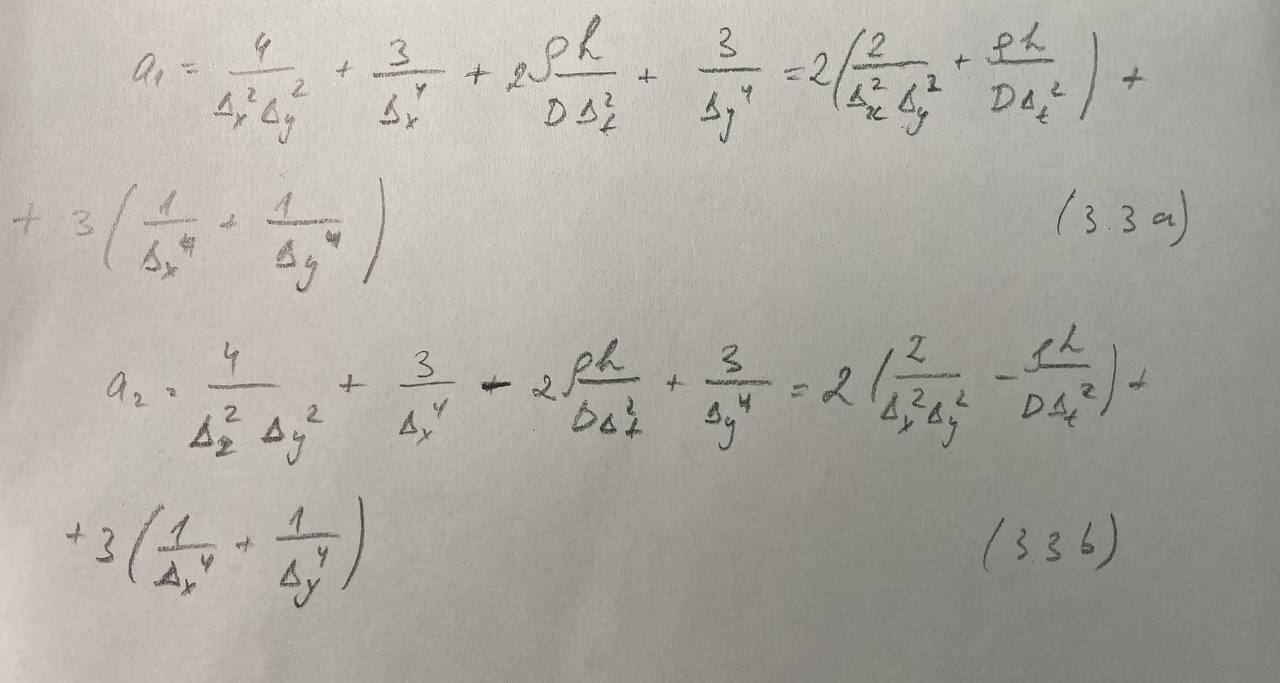 a₁ = 4/(Δx² Δy²) + 3/Δx⁴ + 2 ρh/(DΔt²) + 3/Δy⁴ = 2(2/(Δx² Δy²) + ρh/(DΔt²)) +
+ 3(1/Δx⁴ + 1/Δy⁴) (3.3 a)
a₂ = 4/(Δx² Δy²) + 3/Δx⁴ - 2 ρh/(DΔt²) + 3/Δy⁴ = 2(2/(Δx² Δy²) - ρh/(DΔt²)) +
+ 3(1/Δx⁴ + 1/Δy⁴) (3.3 b)